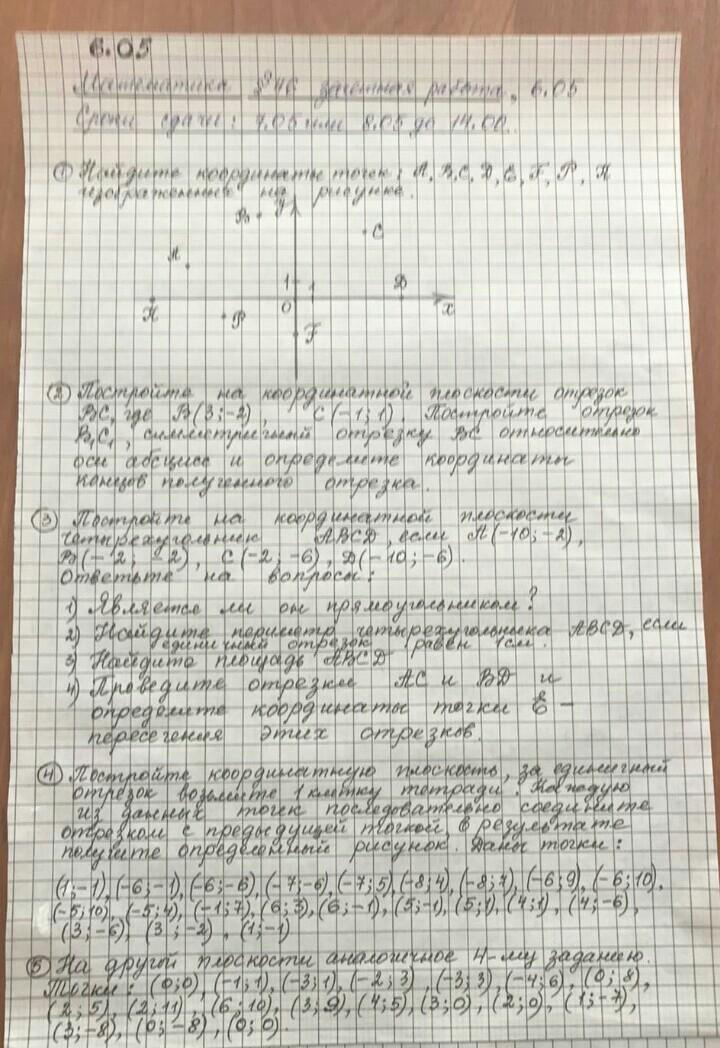 6.05
Математика §46 зачетная работа, 6.05
Сроки сдачи: 7.05 или 8.05 до 14.00.
① Найдите координаты точек: А, В, С, D, E, F, P, H
изображенных на рисунке.
В у
С
А
1 D
H Р 0 1 х
F
② Постройте на координатной плоскости отрезок
ВС, где В(3;-2), С(-1;1). Постройте отрезок
В₁С₁, симметричный отрезку ВС относительно
оси абсцисс и определите координаты
концов полученного отрезка.
③ Постройте на координатной плоскости
четырехугольник ABCD, если А(-10;-2),
В(-2;-2), С(-2;-6), D(-10;-6).
Ответьте на вопросы:
1) Является ли он прямоугольником?
2) Найдите периметр четырехугольника ABCD, если
единичный отрезок равен 1см.
3) Найдите площадь ABCD
4) Проведите отрезки АС и BD и
определите координаты точки E –
пересечения этих отрезков.
④ Постройте координатную плоскость, за единичный
отрезок возьмите 1 клетку тетради. Каждую
из данных точек последовательно соедините
отрезком с предыдущей точкой, в результате
получите определенный рисунок. Даны точки:
(1;-1), (-6;-1), (-6;-6), (-7;-6), (-7;5), (-8;4), (-8;7), (-6;9), (-6;10),
(-5;10), (-5;4), (-1;7), (6;3), (6;-1), (5;-1), (5;1), (4;1), (4;-6),
(3;-6), (3;-2), (1;-1)
⑤ На другой плоскости аналогичное 4-му заданию.
Точки: (0;0), (-1;1), (-3;1), (-2;3), (-3;3), (-4;6), (0;8),
(2;5), (2;11), (6;10), (3;9), (4;5), (3;0), (2;0), (1;-7),
(3;-8), (0;-8), (0;0).